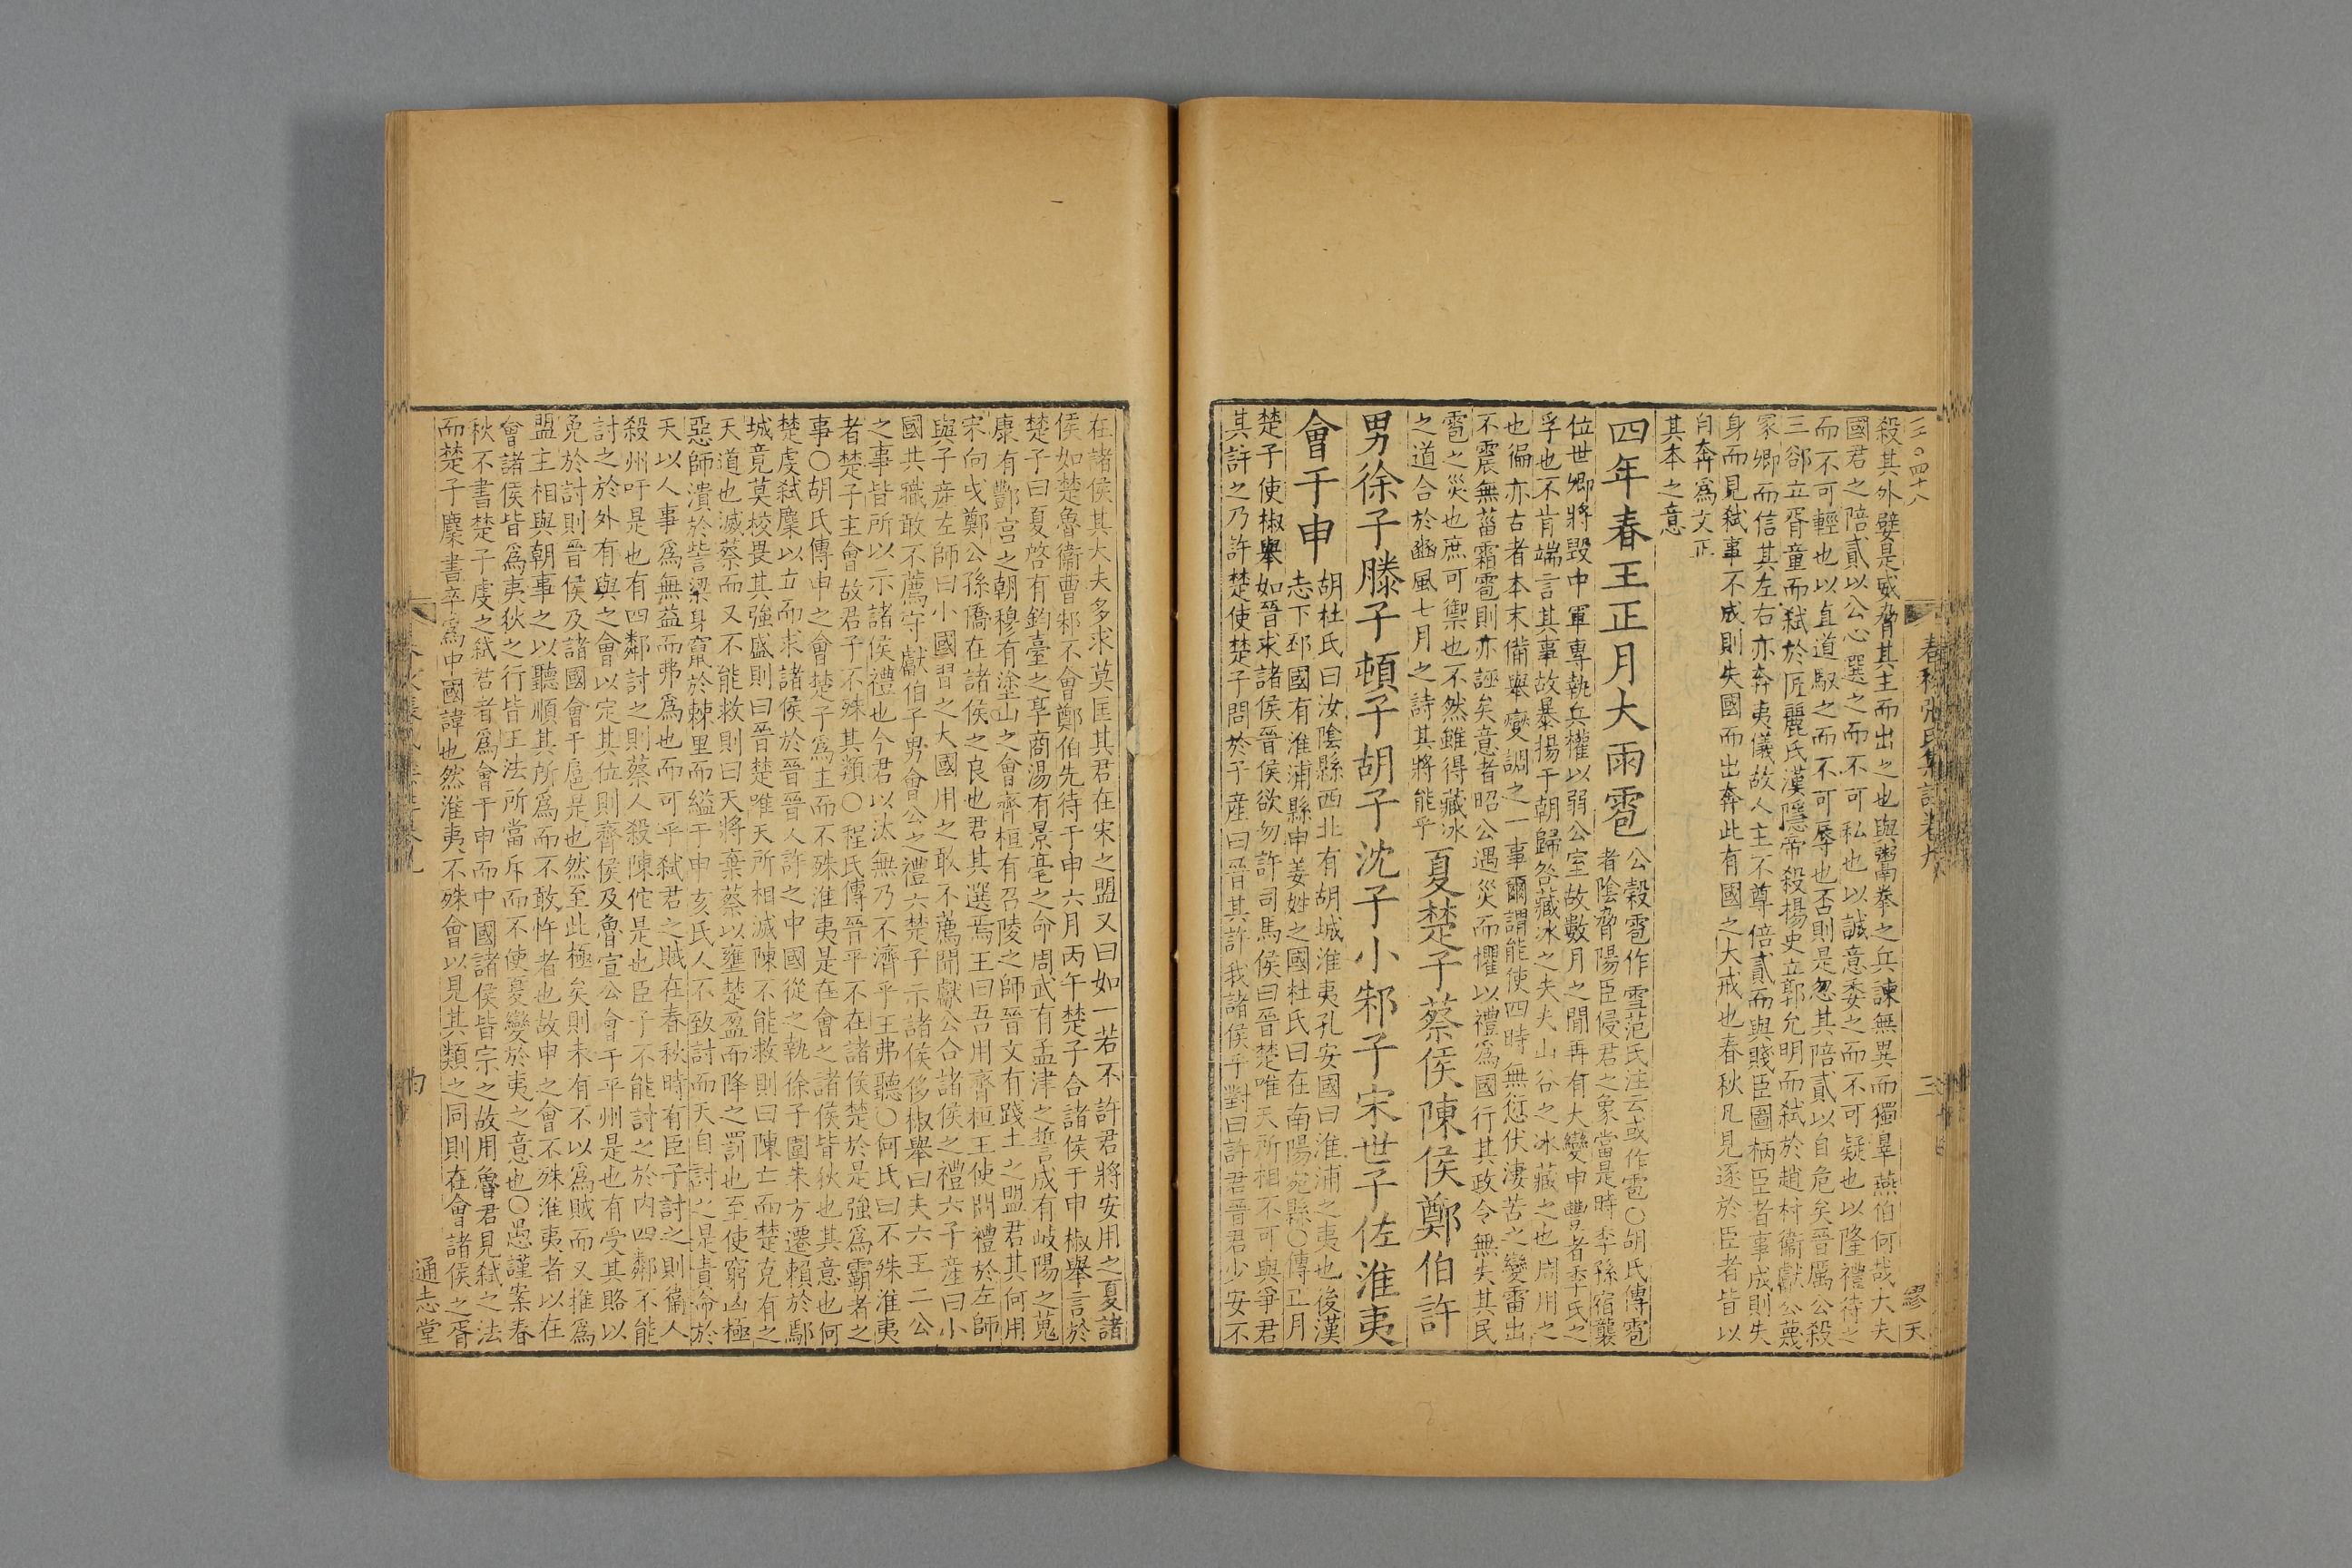 三〇四十八
春秋張氏集註卷九
三
繆天
殺其外嬖是威脅其主而出之也與鬻拳之兵諫無異而獨辠燕伯何哉大夫
國君之陪貳以公心選之而不可私也以誠意委之而不可疑也以隆禮待之
而不可輕也以直道馭之而不可辱也否則是忽其陪貳以自危矣晉厲公殺
三郤立胥童而弑於匠麗氏漢隱帝殺楊史立郭允明而弑於趙村衞獻公蔑
冢卿而信其左右亦奔夷儀故人主不尊倍貳而與賤臣圖柄臣者事成則失
身而見弑事不成則失國而出奔此有國之大戒也春秋凡見逐於臣者皆以
自奔爲文正
其本之意
四年春王正月大雨雹
公穀雹作雪范氏注云或作雹〇胡氏傳雹
者陰脅陽臣侵君之象當是時季孫宿襲
位世卿將毀中軍專執兵權以弱公室故數月之間再有大變申豐者季氏之
孚也不肯端言其事故暴揚于朝歸咎藏冰之夫夫山谷之冰藏之也周用之
也徧亦古者本末備舉變調之一事爾謂能使四時無愆伏淒苦之變雷出
不震無菑霜雹則亦誣矣意者昭公遇災而懼以禮爲國行其政令無失其民
雹之災也庶可禦也不然雖得藏冰
之道合於豳風七月之詩其將能乎
夏楚子蔡侯陳侯鄭伯許
男徐子滕子頓子胡子沈子小邾子宋世子佐淮夷
會于申
胡杜氏曰汝陰縣西北有胡城淮夷孔安國曰淮浦之夷也後漢
志下邳國有淮浦縣申姜姓之國杜氏曰在南陽宛縣〇傳正月
楚子使椒舉如晉求諸侯晉侯欲勿許司馬侯曰晉楚唯天所相不可與爭君
其許之乃許楚使楚子問於子産曰晉其許我諸侯乎對曰許君晉君少安不
在諸侯其大夫多求莫匡其君在宋之盟又曰如一若不許君將安用之夏諸
侯如楚魯衞曹邾不會鄭伯先待于申六月丙午楚子合諸侯于申椒舉言於
楚子曰夏啓有鈞臺之享商湯有景亳之命周武有孟津之誓成有岐陽之蒐
康有酆宮之朝穆有塗山之會齊桓有召陵之師晉文有踐土之盟君其何用
宋向戌鄭公孫僑在諸侯之良也君其選焉王曰吾用齊桓王使問禮於左師
與子産左師曰小國習之大國用之敢不薦聞獻公合諸侯之禮六子産曰小
國共職敢不薦守獻伯子男會公之禮六楚子示諸侯侈椒舉曰夫六王二公
之事皆所以示諸侯禮也今君以汰無乃不濟乎王弗聽〇何氏曰不殊淮夷
者楚子主會故君子不殊其類〇程氏傳晉平不在諸侯楚於是強爲霸者之
事〇胡氏傳申之會楚子爲主而不殊淮夷是在會之諸侯皆狄也其意也何
楚虔弑麇以立而求諸侯於晉晉人許之中國從之執徐子圍朱方遷賴於鄢
城竟莫校畏其強盛則曰晉楚唯天所相滅陳不能救則曰陳亡而楚克有之
天道也滅蔡而又不能救則曰天將棄蔡以壅楚盈而降之罰也至使窮凶極
惡師潰於訾梁身竄於棘里而縊于申亥氏人不致討而天自討之是責命於
天以人事爲無益而弗爲也而可乎弑君之賊在春秋時有臣子討之則衞人
殺州吁是也有四鄰討之則蔡人殺陳佗是也臣子不能討之於内四鄰不能
討之於外有與之會以定其位則齊侯及魯宣公會于平州是也有受其賂以
免於討則晉侯及諸國會于扈是也然至此極矣則未有不以爲賊而又推爲
盟主相與朝事之以聽順其所爲而不敢忤者也故申之會不殊淮夷者以在
會諸侯皆爲夷狄之行皆王法所當斥而不使憂變於夷之意也〇愚謹案春
秋不書楚子虔之弑君者爲會于申而中國諸侯皆宗之故用魯君見弑之法
而楚子麇書卒爲中國諱也然淮夷不殊會以見其類之同則在會諸侯之胥
通志堂